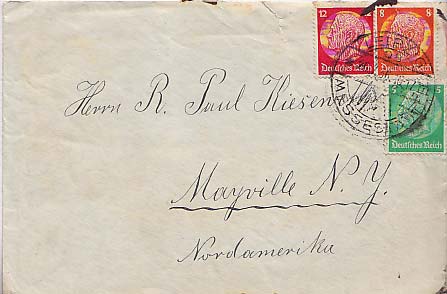 12 8
Deutsches Reich Deutsches Reich
5 5
Deutsches Reich
Herrn R. Paul Kiesen
Mayville N.Y.
Nordamerika